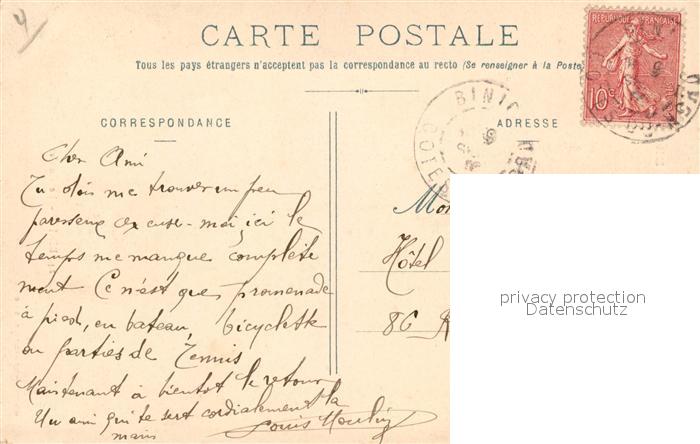 CARTE POSTALE
Tous les pays étrangers n'acceptent pas la correspondance au recto (Se renseigner à la Poste)
REPUBLIQUE FRANÇAISE
10c
BINIC
COTES
CORRESPONDANCE
ADRESSE
Cher Ami
Tu dois me trouver un peu
paresseux excuse-moi, ici le
temps me manque complète
ment Ce n'est que promenade
à pied, en bateau, bicyclette
ou parties de Tennis
Maintenant à bientôt le retour
Un ami qui te sert cordialement la
main Louis
Hôtel
86
privacy protection
Datenschutz